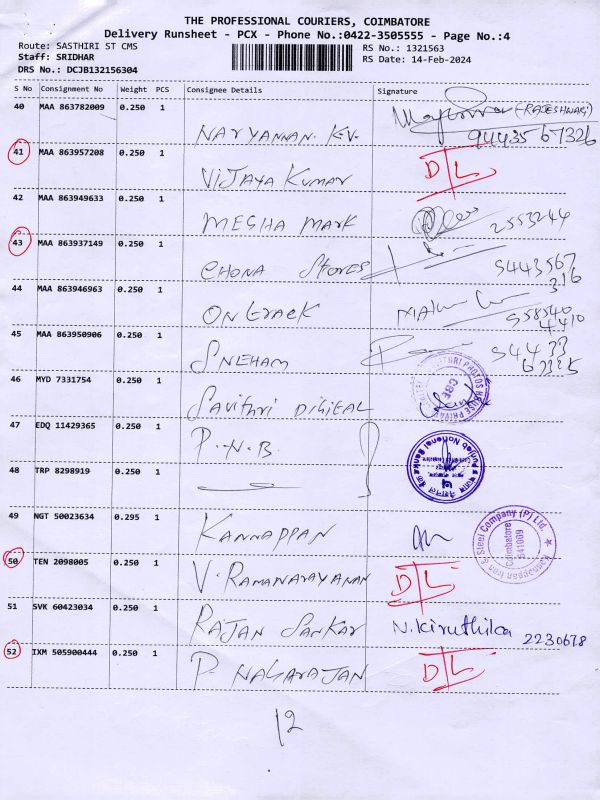 THE PROFESSIONAL COURIERS, COIMBATORE
Delivery Runsheet - PCX - Phone No.:0422-3505555 - Page No.:4
Route: SASTHIRI ST CMS RS No.: 1321563
Staff: SRIDHAR RS Date: 14-Feb-2024
DRS No.: DCJB132156304
S No Consignment No Weight PCS Consignee Details Signature
40 MAA 863782009 0.250 1 (RAJESHWARI)
NARYANNAN. K.V. 94435 67326
41 MAA 863957208 0.250 1 D/L
VIJAYA KUMAR
42 MAA 863949633 0.250 1
MEGHA MARK 2553244
43 MAA 863937149 0.250 1
CHONA STORES 5443567
316
44 MAA 863946963 0.250 1
ONGRACK 558540
4410
45 MAA 863950906 0.250 1
SNEHAM 54433
46 MYD 7331754 0.250 1
SAVITHRI DIGITAL
47 EDQ 11429365 0.250 1
P.N.B
Punjab National Bank
48 TRP 8298919 0.250 1
49 NGT 50023634 0.295 1
KANNAPPAN
Kannappan Iron & Steel Company (P) Ltd.
Coimbatore
641009
50 TEN 2098005 0.250 1 D/L
V. RAMANARAYANAN
51 SVK 60423034 0.250 1
RAJAN SANKAR N.Kiruthika 2230678
52 IXM 505900444 0.250 1 D/L
P. NAGARAJAN
12